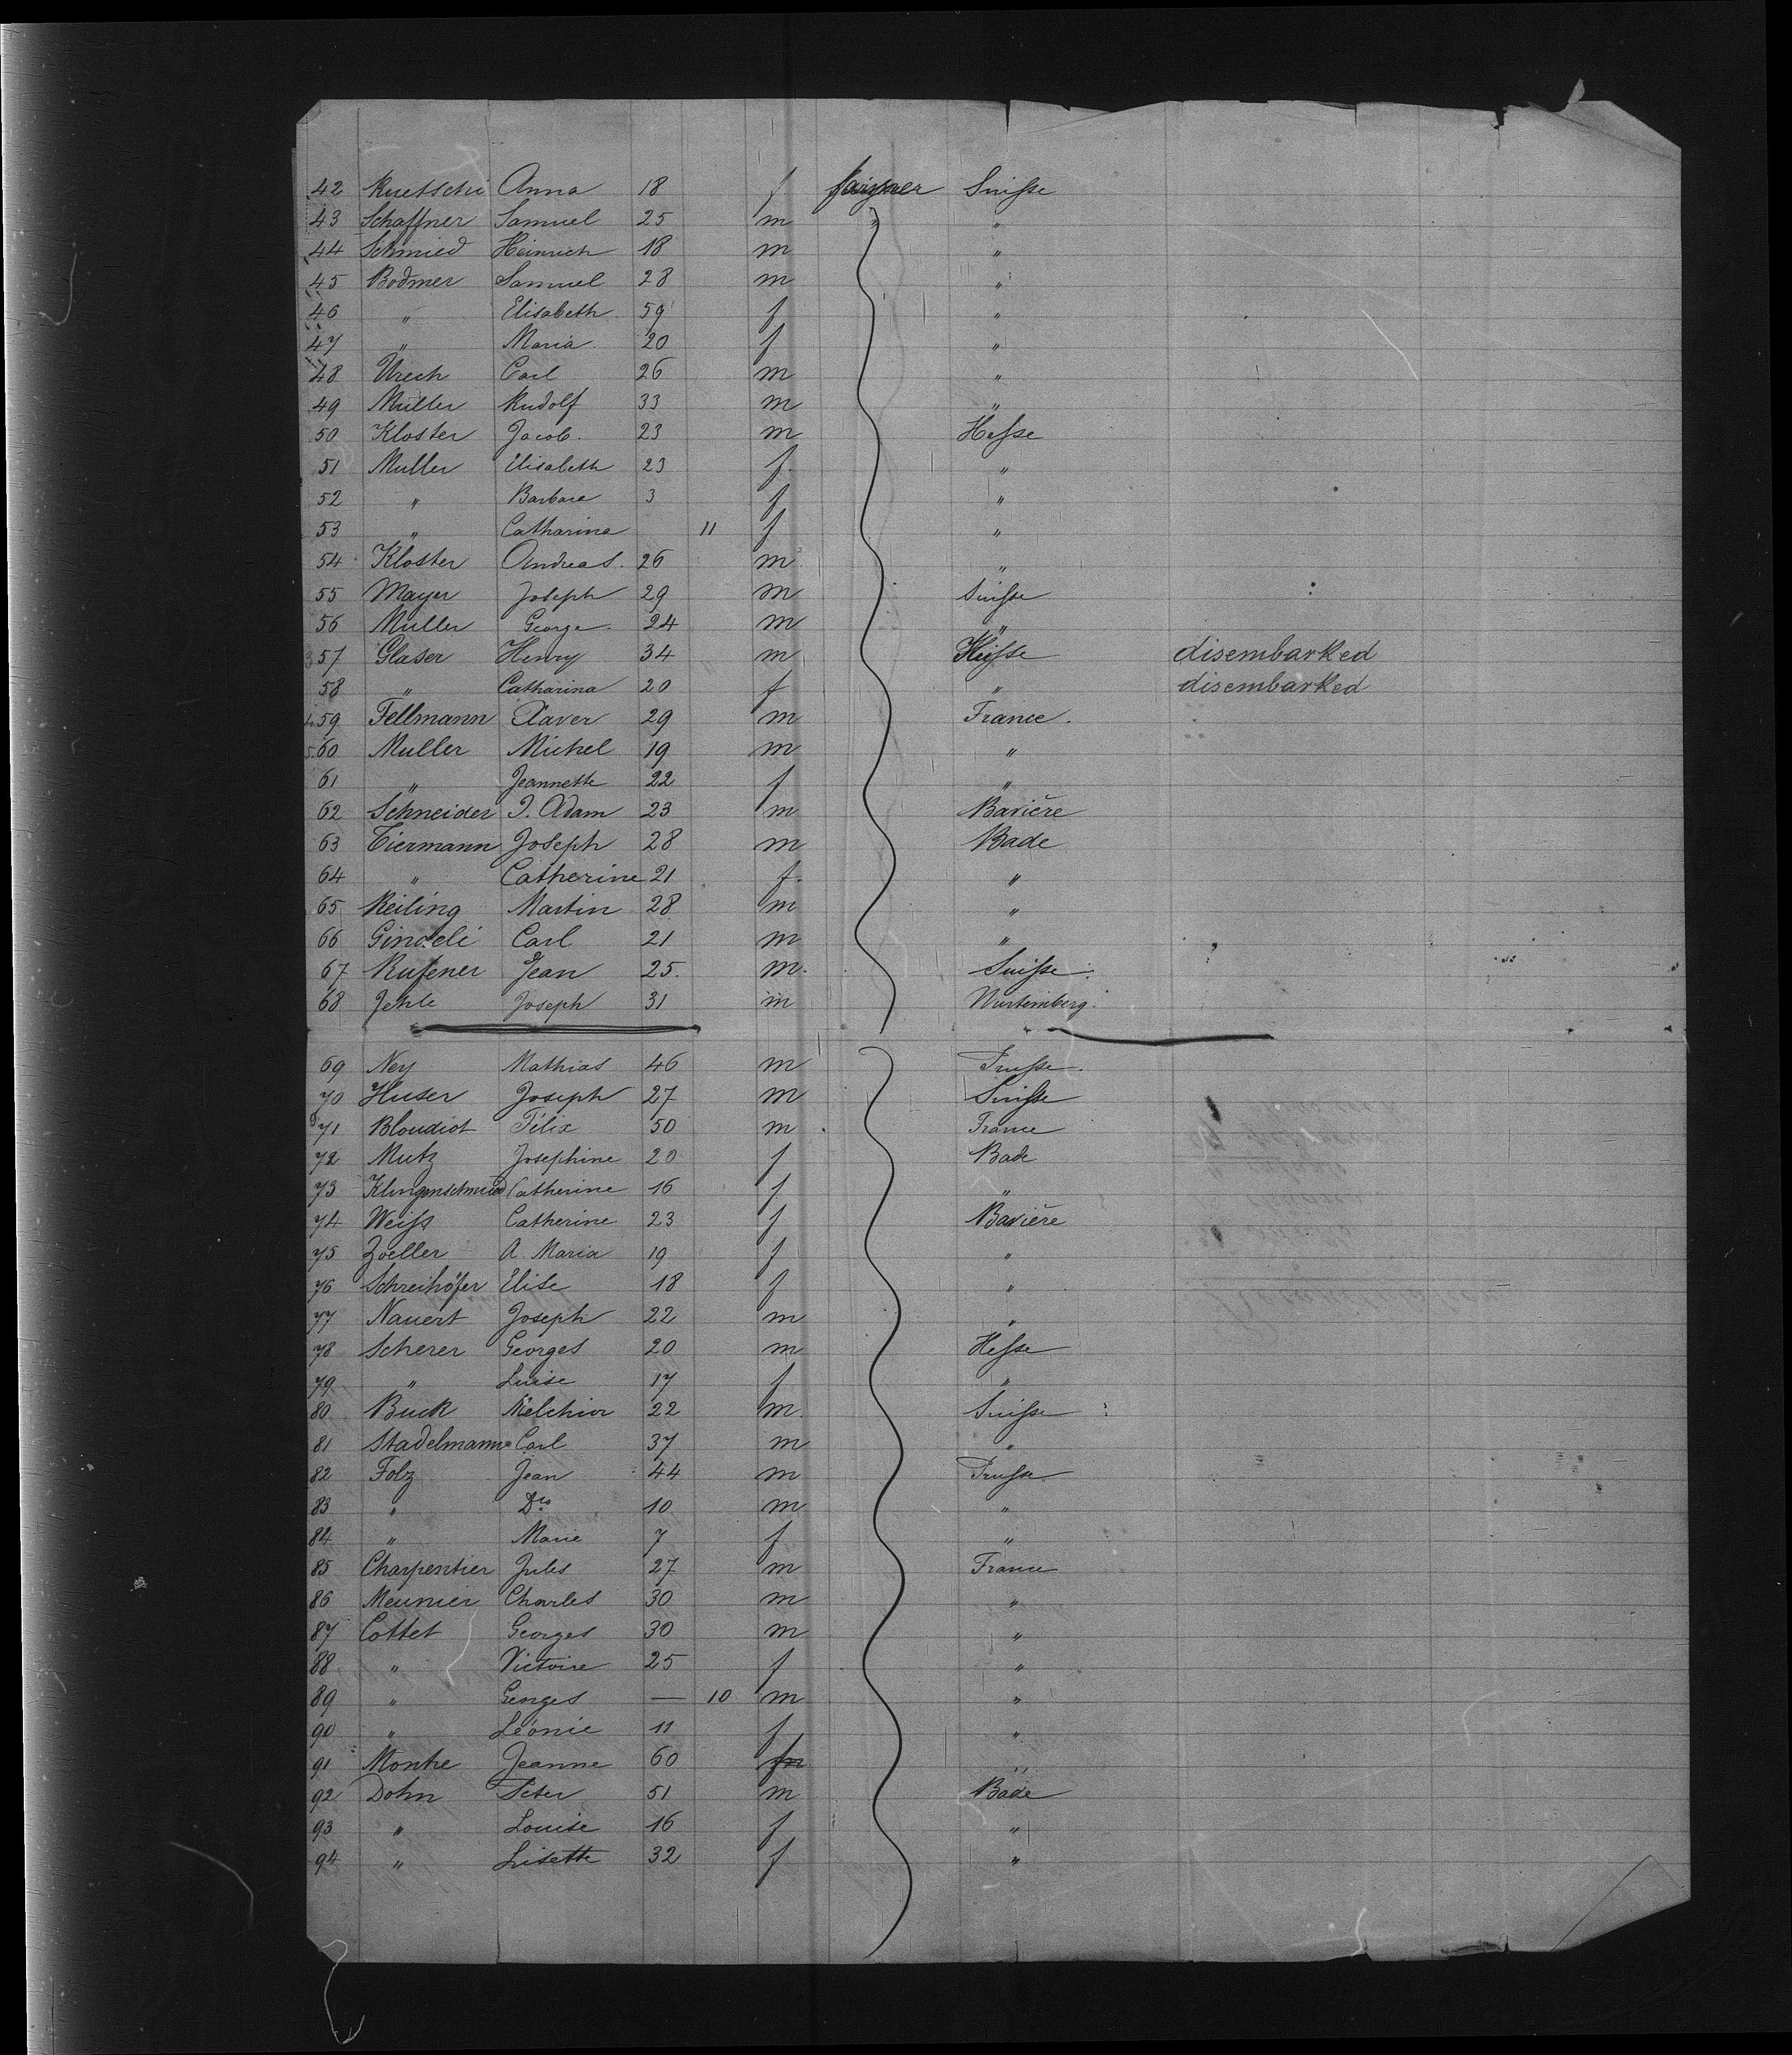 42 Ruetschi Anna 18 f Suisse
43 Schaffner Samuel 25 m " "
44 Schmied Heinrich 18 m "
45 Bodmer Samuel 28 m "
46 " Elisabeth 59 f "
47 " Maria 20 f "
48 Urech Carl 26 m "
49 Müller Rudolf 33 m "
50 Kloster Jacob. 23 m Hesse
51 Muller Elisabeth 23 f. "
52 " Barbara 3 f "
53 " Catharina 11 f "
54 Kloster Andreas. 26 m "
55 Mayer Joseph 29 m Suisse
56 Muller George. 24 m "
57 Glaser Henry 34 m Hesse disembarked
58 " Catharina 20 f " disembarked
59 Fellmann Xaver 29 m France.
60 Muller Michel 19 m "
61 " Jeannette 22 f "
62 Schneider J. Adam 23 m Bavière
63 Tiermann Joseph 28 m Bade
64 " Catherine 21 f. "
65 Reiling Martin 28 m "
66 Gindeli Carl 21 m "
67 Rufener Jean 25. m. Suisse.
68 Jehle Joseph 31 m Wurtemberg.
69 Ney Mathias 46 m Prusse.
70 Huser Joseph 27 m Suisse
71 Bloudiot Félix 50 m France
72 Mutz Josephine 20 f Bade
73 Klingenschmied Catherine 16 f "
74 Weiss Catherine 23 f Bavière
75 Zoeller A. Maria 19 f "
76 Schreihöfer Elise 18 f "
77 Nauert Joseph 22 m "
78 Scherer Georges 20 m Hesse
79 " Luise 17 f "
80 Buck Melchior 22 m. Suisse
81 Stadelmann Carl 37 m "
82 Folz Jean 44 m Prusse
83 " Do 10 m "
84 " Marie 7 f "
85 Charpentier Jules 27 m France
86 Meunier Charles 30 m "
87 Cottet Georges 30 m "
88 " Victoire 25 f "
89 " Georges — 10 m "
90 " Léonie 11 f "
91 Montre Jeanne 60 "
92 Dohn Peter 51 m Bade
93 " Louise 16 f "
94 " Lisette 32 f "